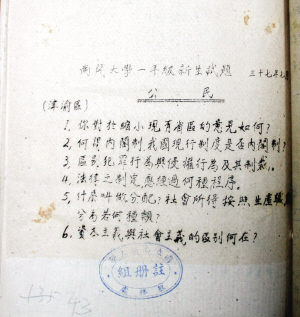 南開大學一年級新生試題
三十七年
公民
(津渝區)
1. 你對於縮小現有省區的意見如何?
2. 何謂內閣制我國現行制度是否內閣制?
3. 區別犯罪行為與侵權行為及其制裁.
4. 法律之制定應經過何種程序.
5. 什麼叫做分配?社會所得按照生產
分為若何種類?
6. 資本主義與社會主義的區別何在?
註冊組
43